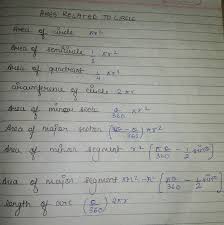 AREAS RELATED TO CIRCLE
Area of circle πr²
Area of semicircle 1/2 πr²
Area of quadrant 1/4 πr²
circumference of circle 2πr
Area of minor sector (θ/360) πr²
Area of major sector (360-θ/360) πr²
Area of minor segment r² [πθ/360 - 1/2 sinθ]
Area of major segment πr² - r² [πθ/360 - 1/2 sinθ]
length of arc (θ/360) 2πr